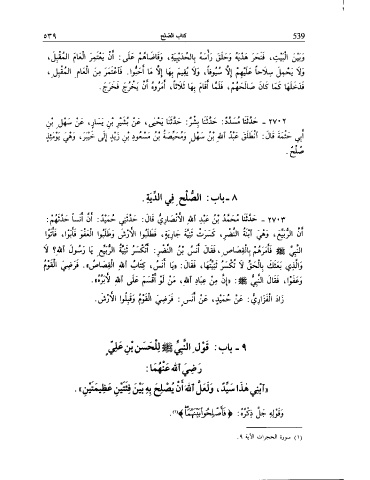 ٥٣٩ كتاب الصلح 539
وَبَيْنَ الْبَيْتِ، فَنَحَرَ هَدْيَهُ وَحَلَقَ رَأْسَهُ بِالْحُدَيْبِيَةِ، وَقَاضَاهُمْ عَلَى: أَنْ يَعْتَمِرَ الْعَامَ الْمُقْبِلَ،
وَلَا يَحْمِلَ سِلَاحاً عَلَيْهِمْ إِلَّا سُيُوفاً، وَلَا يُقِيمَ بِهَا إِلَّا مَا أَحَبُّوا. فَاعْتَمَرَ مِنَ الْعَامِ الْمُقْبِلِ،
فَدَخَلَهَا كَمَا كَانَ صَالَحَهُمْ، فَلَمَّا أَقَامَ بِهَا ثَلَاثاً، أَمَرُوهُ أَنْ يَخْرُجَ فَخَرَجَ.
٢٧٠٢ - حَدَّثَنَا مُسَدَّدٌ: حَدَّثَنَا بِشْرٌ: حَدَّثَنَا يَحْيَى، عَنْ بُشَيْرِ بْنِ يَسَارٍ، عَنْ سَهْلِ بْنِ
أَبِي حَثْمَةَ قَالَ: انْطَلَقَ عَبْدُ اللهِ بْنُ سَهْلٍ وَمُحَيِّصَةُ بْنُ مَسْعُودِ بْنِ زَيْدٍ إِلَى خَيْبَرَ، وَهْيَ يَوْمَئِذٍ
صُلْحٌ.
٨ - باب: الصُّلْحِ فِي الدِّيَةِ.
٢٧٠٣ - حَدَّثَنَا مُحَمَّدُ بْنُ عَبْدِ اللهِ الْأَنْصَارِيُّ قَالَ: حَدَّثَنِي حُمَيْدٌ: أَنَّ أَنَساً حَدَّثَهُمْ:
أَنَّ الرُّبَيِّعَ، وَهْيَ ابْنَةُ النَّضْرِ، كَسَرَتْ ثَنِيَّةَ جَارِيَةٍ، فَطَلَبُوا الْأَرْشَ وَطَلَبُوا الْعَفْوَ فَأَبَوْا، فَأَتَوُا
النَّبِيَّ ﷺ فَأَمَرَهُمْ بِالْقِصَاصِ، فَقَالَ أَنَسُ بْنُ النَّضْرِ: أَتُكْسَرُ ثَنِيَّةُ الرُّبَيِّعِ يَا رَسُولَ اللهِ؟ لَا
وَالَّذِي بَعَثَكَ بِالْحَقِّ لَا تُكْسَرُ ثَنِيَّتُهَا، فَقَالَ: «يَا أَنَسُ، كِتَابُ اللهِ الْقِصَاصُ». فَرَضِيَ الْقَوْمُ
وَعَفَوْا، فَقَالَ النَّبِيُّ ﷺ: «إِنَّ مِنْ عِبَادِ اللهِ، مَنْ لَوْ أَقْسَمَ عَلَى اللهِ لَأَبَرَّهُ».
زَادَ الْفَزَارِيُّ: عَنْ حُمَيْدٍ، عَنْ أَنَسٍ: فَرَضِيَ الْقَوْمُ وَقَبِلُوا الْأَرْشَ.
٩ - باب: قَوْلِ النَّبِيِّ ﷺ لِلْحَسَنِ بْنِ عَلِيٍّ
رَضِيَ اللهُ عَنْهُمَا:
«ابْنِي هٰذَا سَيِّدٌ، وَلَعَلَّ اللهَ أَنْ يُصْلِحَ بِهِ بَيْنَ فِئَتَيْنِ عَظِيمَتَيْنِ».
وَقَوْلِهِ جَلَّ ذِكْرُهُ: ﴿فَأَصْلِحُوا بَيْنَهُمَا﴾(١).
(١) سورة الحجرات الآية ٩.